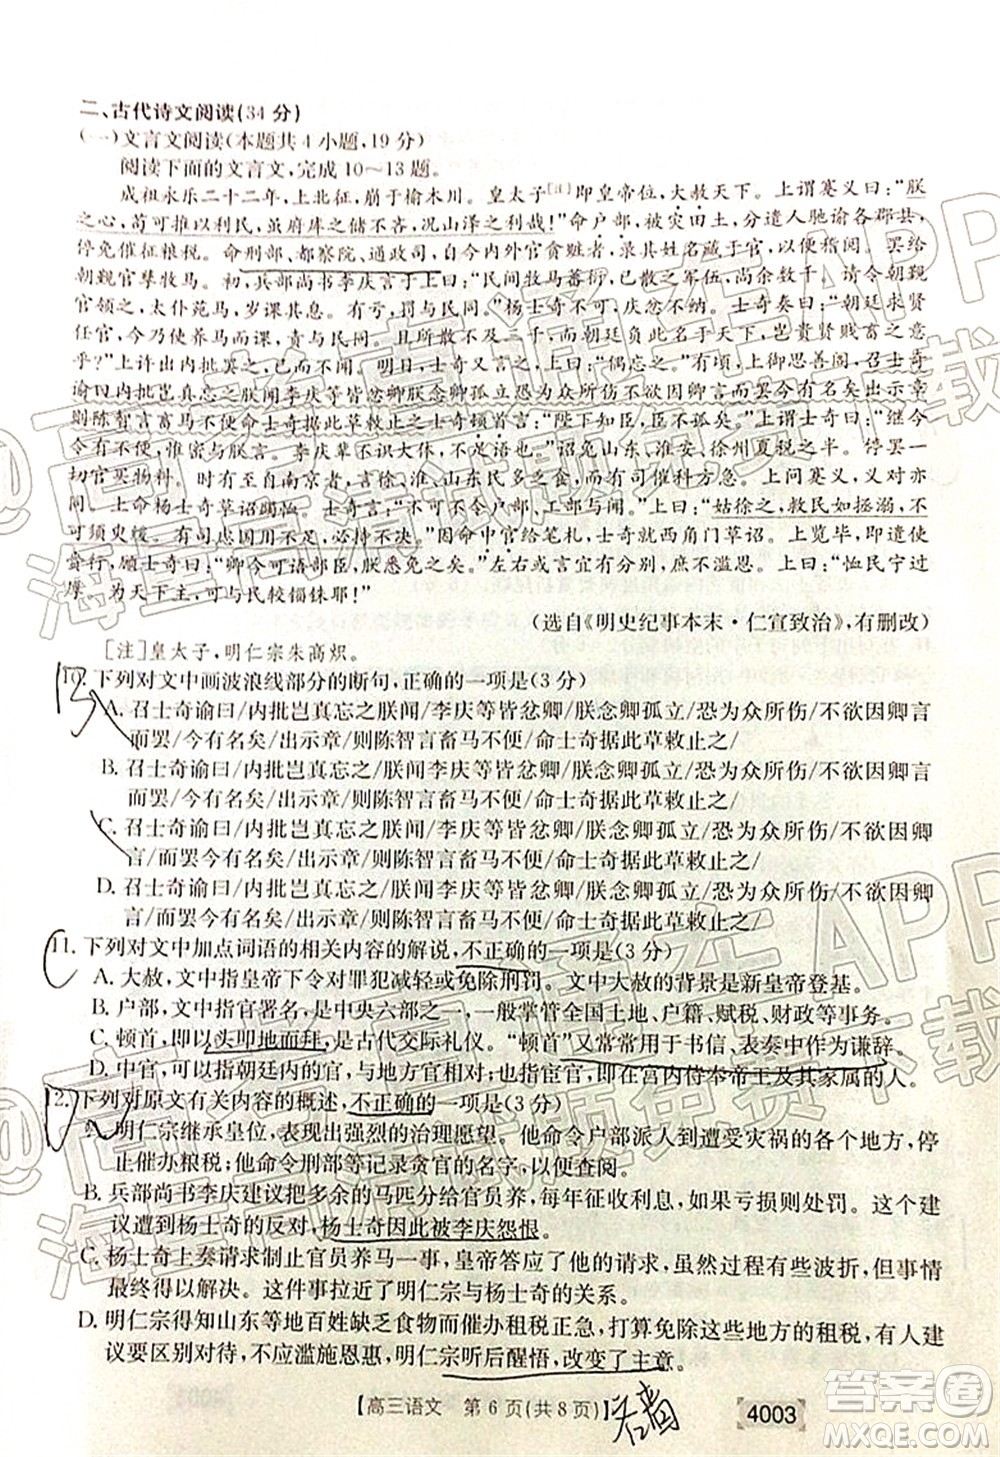 二、古代诗文阅读(34分)
(一)文言文阅读(本题共4小题,19分)
阅读下面的文言文,完成10~13题。
成祖永乐二十二年,上北征,崩于榆木川。皇太子[注]即皇帝位,大赦天下。上谓蹇义曰:“朕
之心,苟可推以利民,虽府库之储不吝,况山泽之利哉!”命户部,被灾田土,分遣人驰谕各郡县,
停免催征粮税。命刑部、都察院、通政司,自今内外官贪赃者,录其姓名藏于官,以便稽阅。罢给
朝觐官孳牧马。初,兵部尚书李庆言于上曰:“民间牧马蕃衍,已散之军伍,尚余数千。请令朝觐
官领之,太仆苑马,岁课其息。有亏,罚与民同。”杨士奇不可,庆忿不纳。士奇奏曰:“朝廷求贤
任官,今乃使养马而课,责与民同,虽不及三,而朝廷负此于天下,岂贵贤贱畜之意
乎?”上许出内批罢之,已而不闻。明日,士奇又言之。上曰:“偶忘之。”有顷,上御思善阁,召士奇
谕曰内批岂真忘之朕闻李庆等皆忿卿朕念卿孤立恐为众所伤不欲因卿言而罢今有名矣出示章
则陈智言畜马不便命士奇据此草敕止之士奇顿首言:“陛下知臣,臣不孤矣。”上谓士奇曰:“继今
令有不便,惟密与朕言。李庆辈不识大体,不足语也。”诏免山东、淮安、徐州夏税之半。停罢一
切官买物料。时有至自南京者,上问道路所过,对以淮、徐、山东民多乏食,而有司征税方急。上问蹇义,义对如
所言。上命杨士奇草诏蠲恤。士奇言:“不可不令户部、工部与闻。”上曰:“姑徐之,救民如拯溺,不
可须臾缓。有司虑国用不足,必持不决。”因命中官给笔札,士奇就西角门草诏。上览毕,即遣使
赍行,顾士奇曰:“卿今可语部臣,朕悉免之矣。”左右或言宜有分别,庶不滥恩。上曰:“恤民宁过
厚。为天下主,可与民较锱铢耶!”
(选自《明史纪事本末·仁宣致治》,有删改)
[注]皇太子,明仁宗朱高炽。
10. 下列对文中画波浪线部分的断句,正确的一项是(3分)
A. 召士奇谕曰/内批岂真忘之朕闻/李庆等皆忿卿/朕念卿孤立/恐为众所伤/不欲因卿言
而罢/今有名矣/出示章/则陈智言畜马不便/命士奇据此草敕止之/
B. 召士奇谕曰/内批岂真忘之/朕闻李庆等皆忿卿/朕念卿孤立/恐为众所伤/不欲因卿言
而罢/今有名矣/出示章/则陈智言畜马不便/命士奇据此草敕止之/
C. 召士奇谕曰/内批岂真忘之/朕闻/李庆等皆忿卿/朕念卿孤立/恐为众所伤/不欲因卿
言/而罢今有名矣/出示章/则陈智言畜马不便/命士奇据此草敕止之/
D. 召士奇谕曰/内批岂真忘之/朕闻/李庆等皆忿卿/朕念卿孤立/恐为众所伤/不欲因卿
言/而罢今有名矣/出示章/则陈智言/畜马不便/命士奇据此草敕止之/
11. 下列对文中加点词语的相关内容的解说,不正确的一项是(3分)
A. 大赦,文中指皇帝下令对罪犯减轻或免除刑罚。文中大赦的背景是新皇帝登基。
B. 户部,文中指官署名,是中央六部之一,一般掌管全国土地、户籍、赋税、财政等事务。
C. 顿首,即以头叩地而拜,是古代交际礼仪。“顿首”又常常用于书信、表奏中作为谦辞。
D. 中官,可以指朝廷内的官员,也可以指宦官,文中指在宫内侍奉帝王及其家属的人。
12. 下列对原文有关内容的概述,不正确的一项是(3分)
A. 明仁宗继承皇位,表现出强烈的治理愿望。他命令户部派人到遭受灾祸的各个地方,停
止催办粮税;他命令刑部等部门记录贪污受贿者的名字,以便查阅。
B. 兵部尚书李庆建议把多余的马匹分给官员养,每年收取利息,如果亏损则处罚。这个建
议遭到杨士奇的反对,杨士奇因此被李庆怨恨。
C. 杨士奇上奏请求制止官员养马一事,皇帝答应了他的请求,虽然有些波折,但是事情
最终得以解决。这件事拉近了明仁宗和杨士奇的关系。
D. 明仁宗得知山东等地百姓缺乏食物而催办租税正急,打算免除这些地方的租税,有人建
议要区别对待,不应滥施恩惠,明仁宗听后醒悟,改变了主意。
【高三语文 第6页(共8页)】
4003
答案圈
MXQE.COM